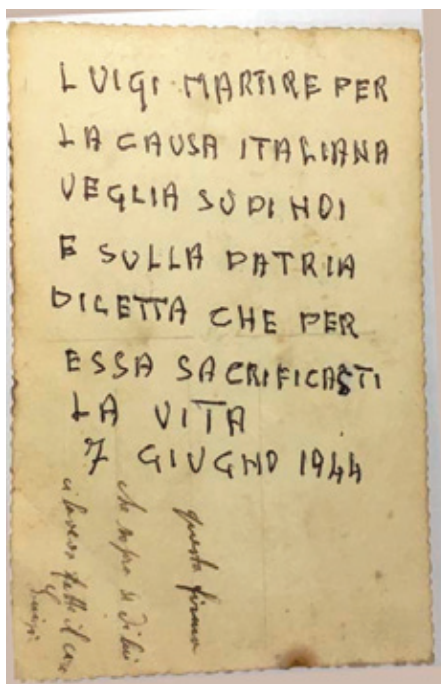 LUIGI MARTIRE PER
LA CAUSA ITALIANA
VEGLIA SU DI NOI
E SULLA PATRIA
DILETTA CHE PER
ESSA SACRIFICASTI
LA VITA
7 GIUGNO 1944
questa firma
che sopra di lui
ci aveva fatto il
Luigi